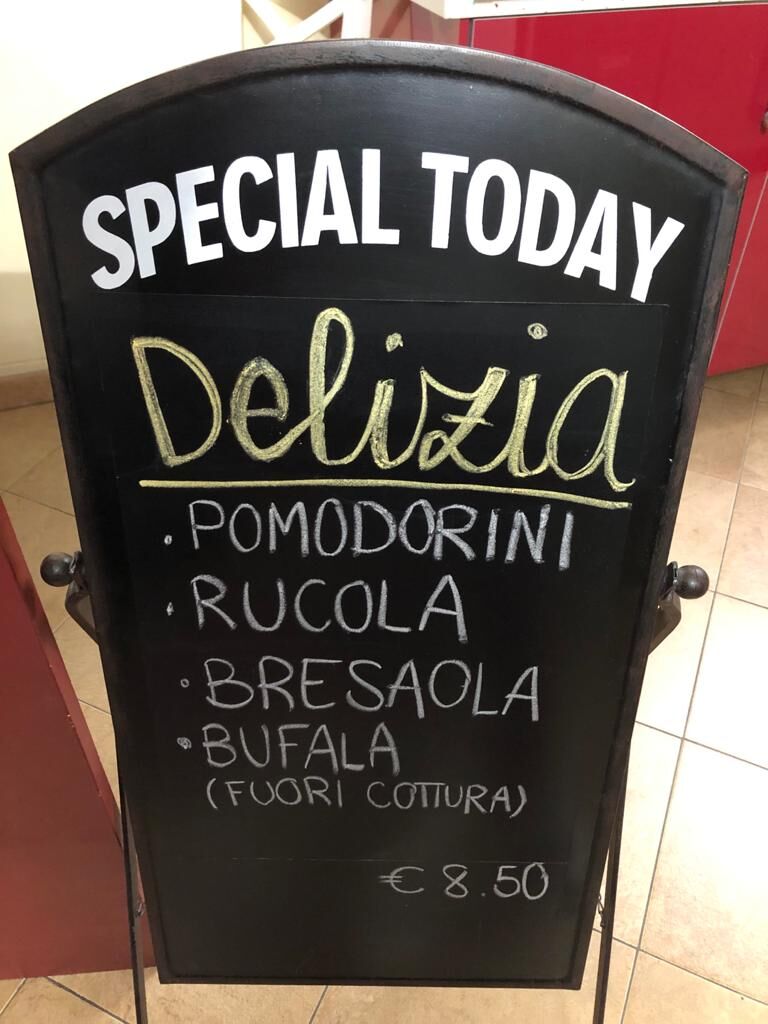 SPECIAL TODAY
Delizia
• POMODORINI
• RUCOLA
• BRESAOLA
• BUFALA
(FUORI COTTURA)
€ 8.50